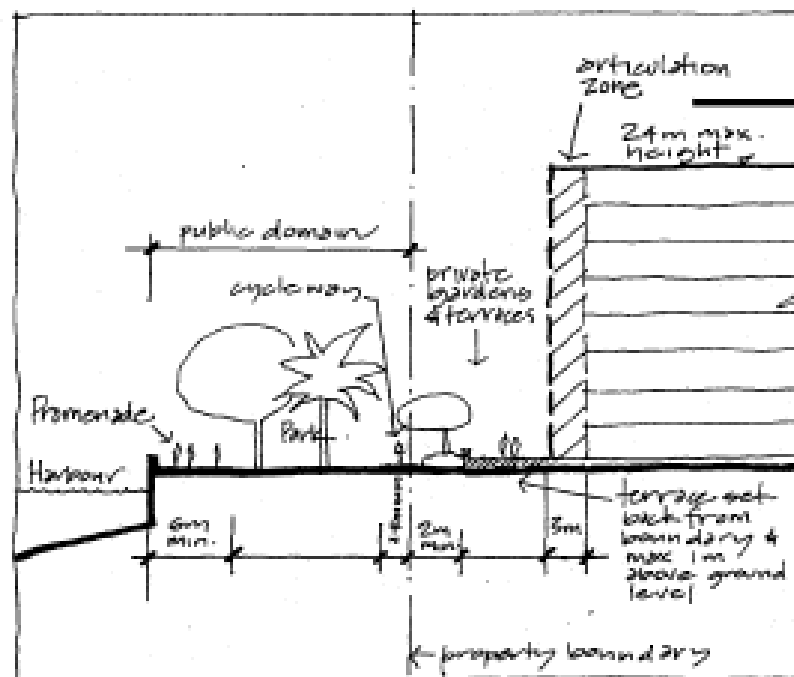 articulation
zone
24m max.
height
public domain
cycleway
private
gardens
& terraces
Promenade
Park
Harbour
6m
min.
2m
min.
3m
terrace set
back from
boundary &
max 1m
above ground
level
property boundary